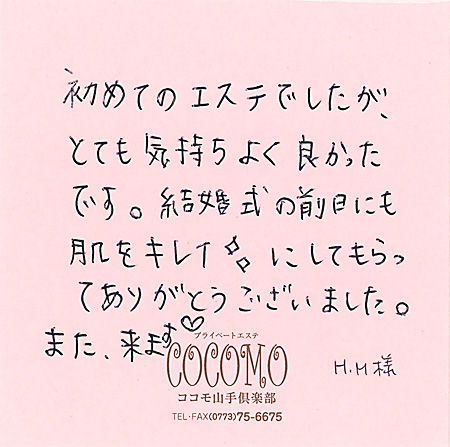 初めてのエステでしたが、
とても気持ちよく良かった
です。結婚式の前日にも
肌をキレイにしてもらっ
てありがとうございました。
また、来ます♡
プライベートエステ
COCOMO
ココモ山手倶楽部
TEL・FAX(0773)75-6675
H.H様